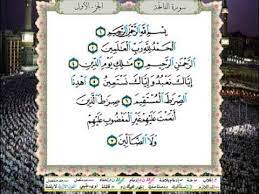 الجزء الأول سورة الفاتحة
بِسْمِ اللَّهِ الرَّحْمَٰنِ الرَّحِيمِ ١
الْحَمْدُ لِلَّهِ رَبِّ الْعَالَمِينَ ٢
الرَّحْمَٰنِ الرَّحِيمِ ٣ مَلِكِ يَوْمِ الدِّينِ ٤
إِيَّاكَ نَعْبُدُ وَإِيَّاكَ نَسْتَعِينُ ٥ اهْدِنَا
الصِّرَاطَ الْمُسْتَقِيمَ ٦ صِرَاطَ الَّذِينَ
أَنْعَمْتَ عَلَيْهِمْ غَيْرِ الْمَغْضُوبِ عَلَيْهِمْ
وَلَا الضَّالِّينَ ٧